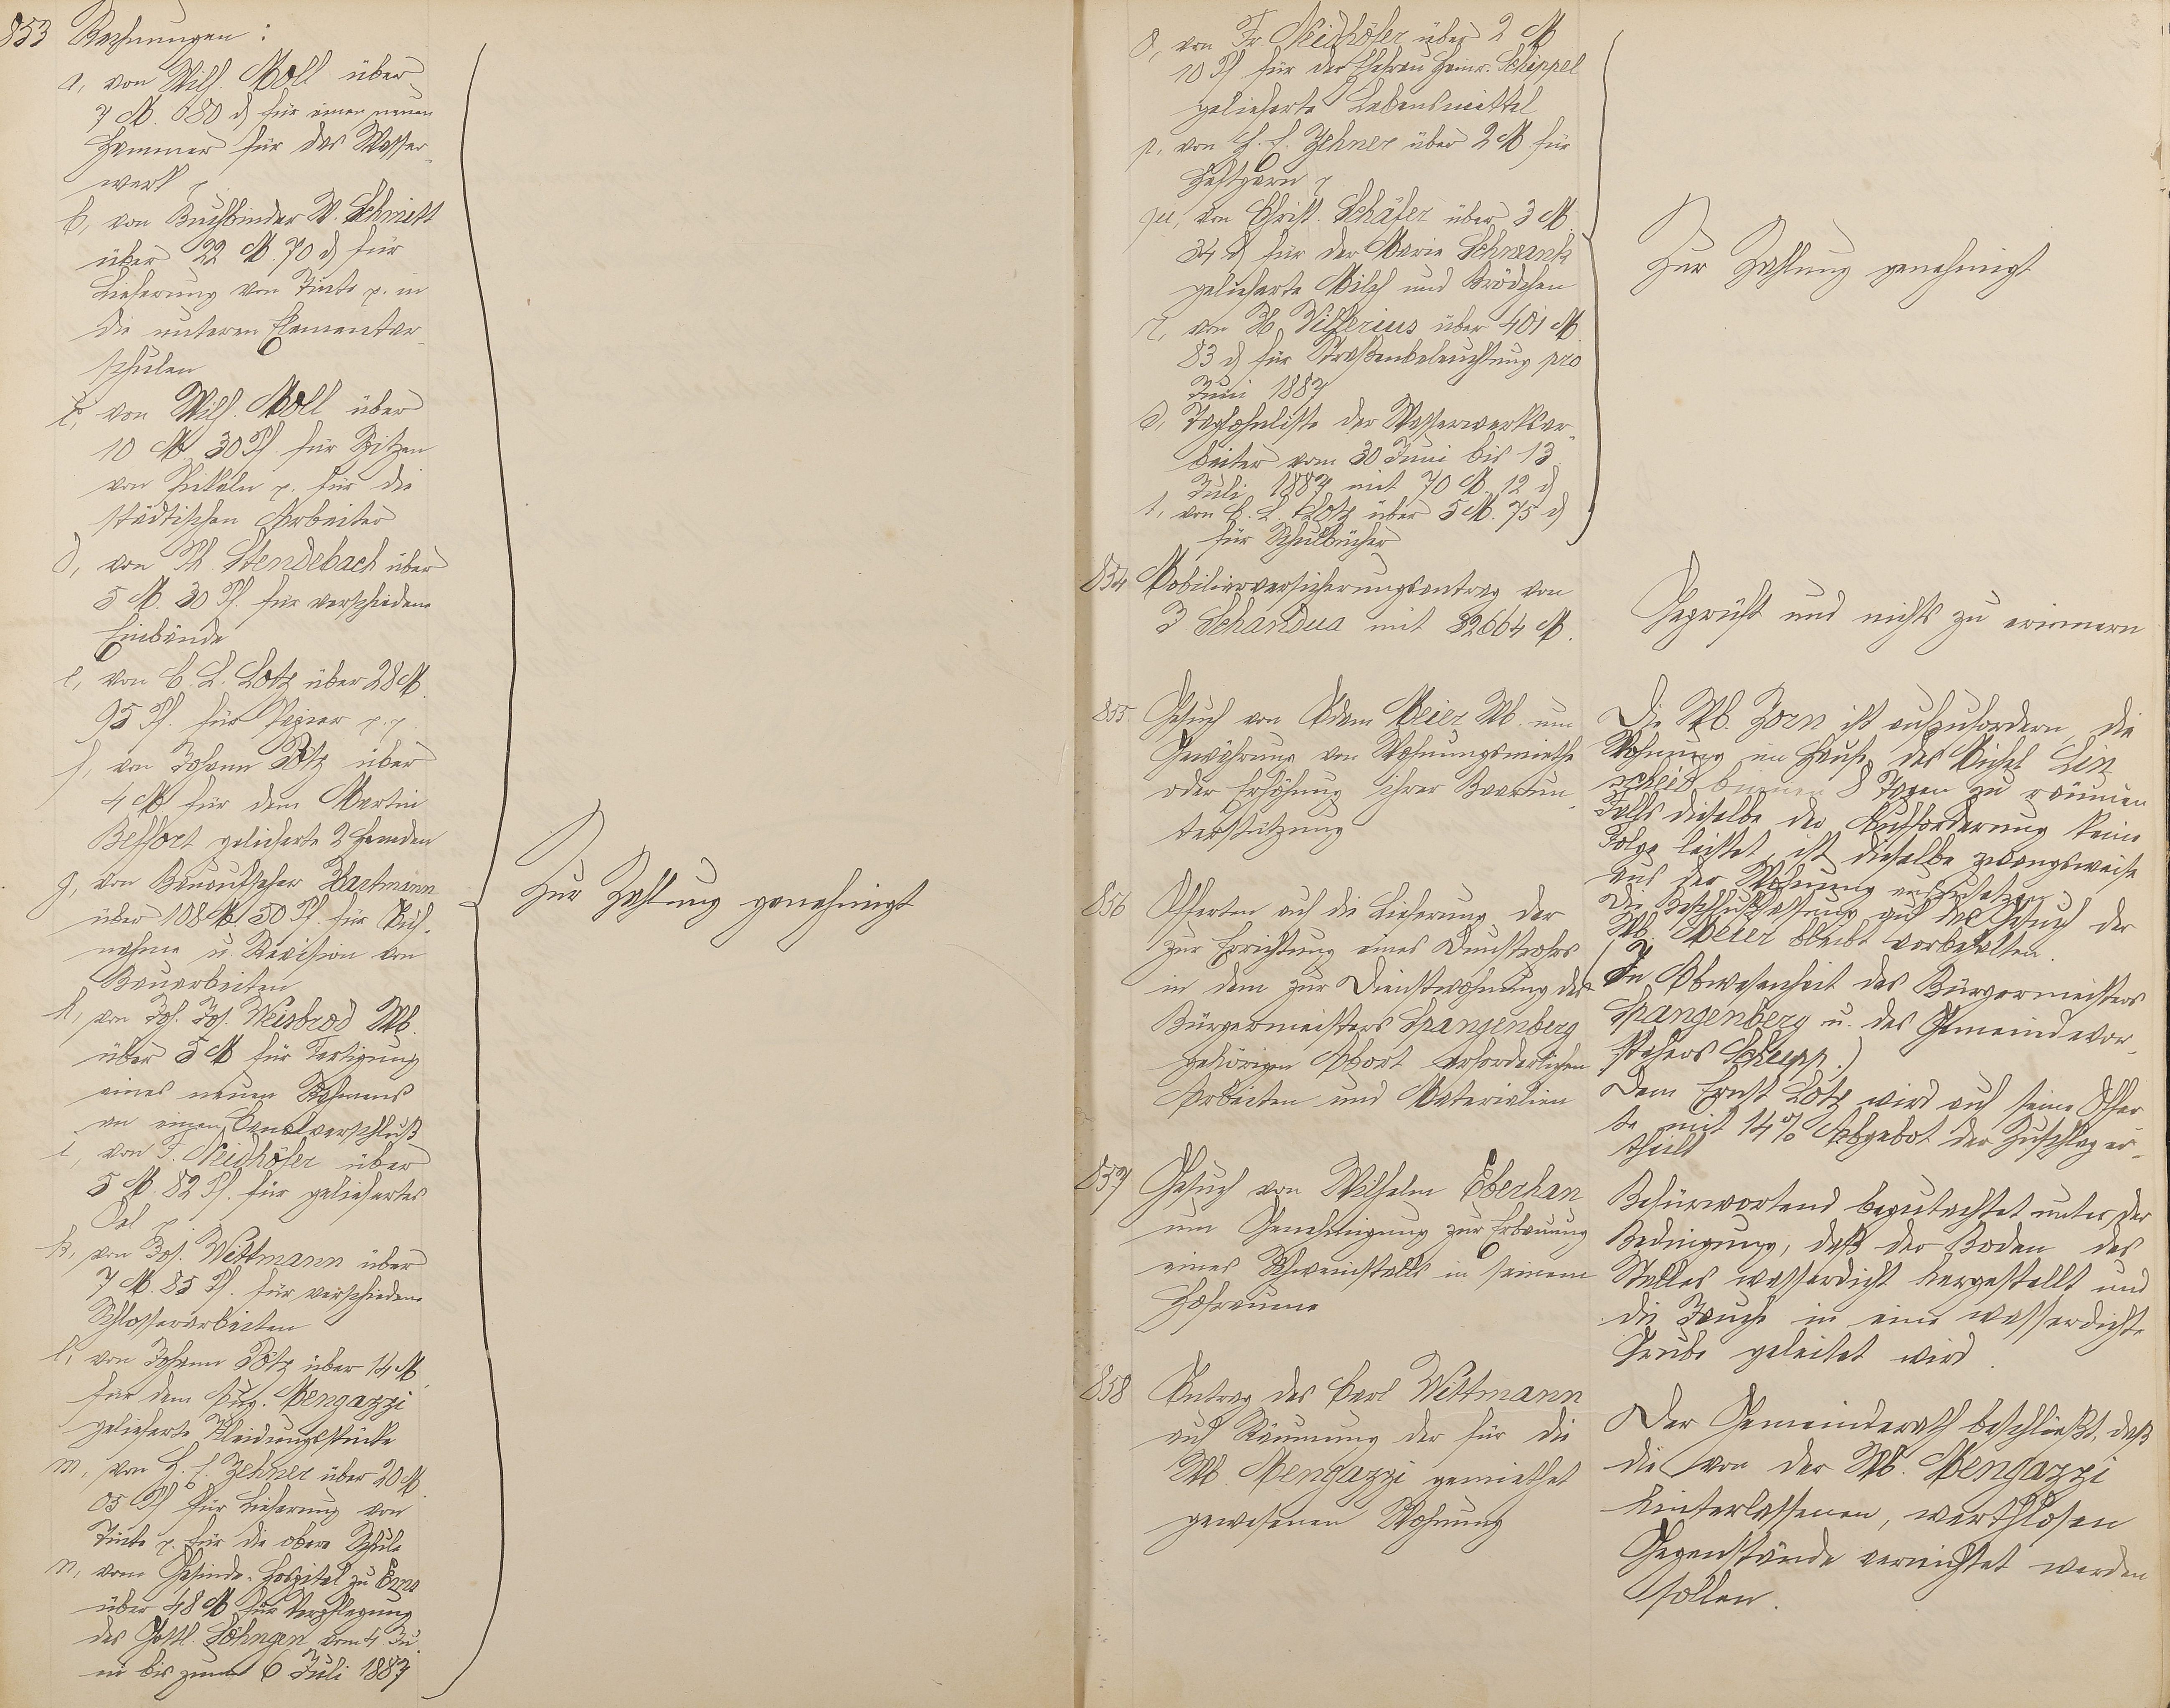 853 Rechnungen:
a, von Wilh. Moll über
7 M. 80 d für einen neuen
Hammer für das Wasser-
werk p.
b, von Buchbinder W. Schmitt
über 22 M. 70 d für
Lieferung von Tinte p. in
die unteren Elementar-
schulen
c, von Wilh. Moll über
10 M. 30 Pf. für Spitzen
von Pickeln p. für die
städtischen Arbeiter
d, von Ph. Stendebach über
5 M. 30 Pf. für verschiedene
Einbände
e, von C. L. Lotz über 28 M.
95 Pf. für Papier p.p.
f, von Johann Pötz über
4 M für dem Martin
Belffort gelieferte 2 Hemden
g, von Bauaufseher Hartmann
über 108 M. 50 Pf. für Auf-
nahme u. Revision von
Bauarbeiten
h, von Joh. Jos. Weisbrod Wb.
über 5 M für Fertigung
eines neuen Rahmens
an einen Canalverschluß
i, von F. Neidhöfer über
5 M. 82 Pf. für geliefertes
Oel p.
k, von Jos. Wittmann über
7 M. 85 Pf. für verschiedene
Schlosserarbeiten
l, von Johann Pötz über 14 M.
für dem Aug. Mengazzi
gelieferte Kleidungsstücke
m, von H. C. Zehner über 20 M.
05 Pf für Lieferung von
Tinte p. für die obere Schule
n, vom Gesinde-Hospital zu Ems
über 48 M für Verpflegung
des Gottl. Söhngen vom 4. Ju-
ni bis zum 6 Juli 1887
Zur Zahlung genehmigt
o, von Fr. Neidhöfer über 2 M
10 Pf für der Ehefrau Heinr. Schippel
gelieferte Lebensmittel
p, von H. C. Zehner über 2 M für
Heftgarn p.
qu, von Christ. Schäfer über 3 M.
34 d für der Marie Schwank
gelieferte Milch und Brödchen
r, von H. Vissserius über 401 M
83 d für Straßenbeleuchtung pro
Juni 1887
s, Taglohnliste der Wasserwerksar-
beiter vom 30 Juni bis 13
Juli 1887 mit 70 M. 12 d
t, von C. L. Lotz über 5 M. 75 d
für Schulbücher
Zur Zahlung genehmigt
854 Mobiliarversicherungsantrag von
J Schandua mit 82664 M.
Geprüft und nichts zu erinnern
855 Gesuch von Adam Meier Wb. um
Gewährung von Wohnungsmiethe
oder Erhöhung ihrer Baarun-
terstützung
Die Wb. Zorn ist aufzufordern, die
Wohnung im Hause des Michel Lin-
scheid binnen 8 Tagen zu räumen
Falls dieselbe der Aufforderung keine
Folge leistet, ist dieselbe zwangsweise
aus der Wohnung auszusetzen
Die Beschlußfassung auf das Gesuch der
Wb. Meier bleibt vorbehalten.
856 Offerten auf die Lieferung der
zur Errichtung eines Dunstrohrs
in dem zur Dienstwohnung des
Bürgermeisters Spangenberg
gehörigen Abort erforderlichen
Arbeiten und Materialien
(In Abwesenheit des Bürgermeisters
Spangenberg u. des Gemeindevor-
stehers Schupp.)
Dem Ernst Lotz wird auf seine Offer-
te mit 14% Abgebot der Zuschlag er-
theilt
857 Gesuch von Wilhelm Eberhan
um Genehmigung zur Erbauung
eines Schweinstalls in seinem
Hofraume
Befürwortend begutachtet unter der
Bedingung, daß der Boden des
Stalles wasserdicht hergestellt und
die Jauche in eine wasserdichte
Grube geleitet wird.
858 Antrag des Carl Wittmann
auf Räumung der für die
Wb. Mengazzi gemiethet
gewesenen Wohnung
Der Gemeinderath beschließt, daß
die von der Wb. Mengazzi
hinterlassenen, werthlosen
Gegenstände vernichtet werden
sollen.